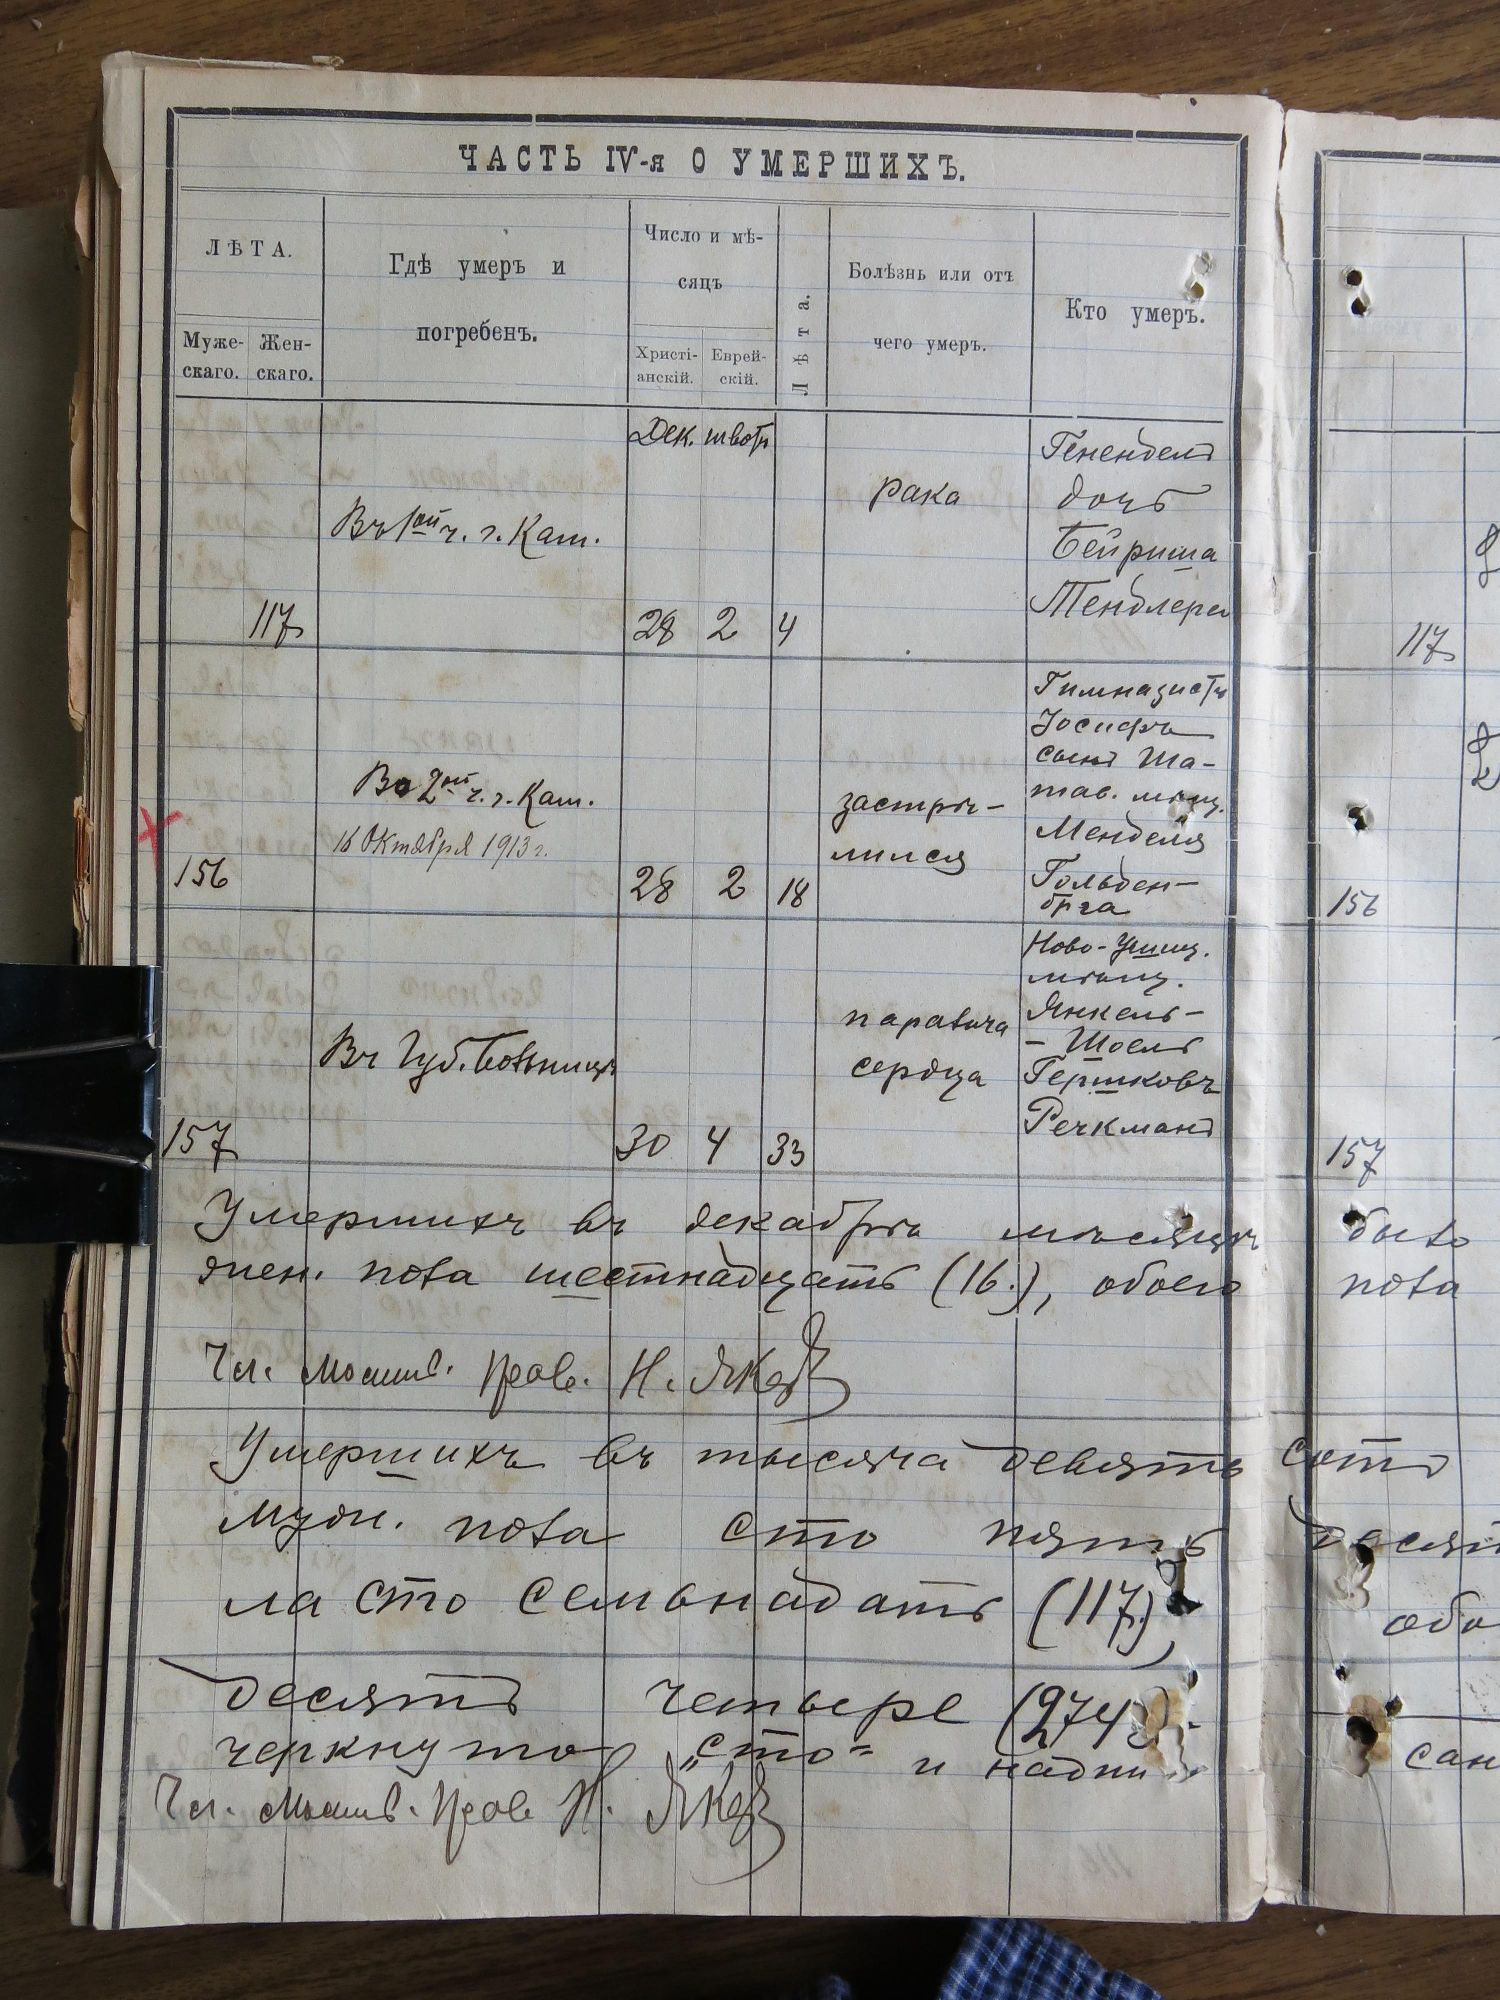 ЧАСТЬ IV-я О УМЕРШИХЪ.
ЛѢТА.
Муже-
скаго.
Жен-
скаго.
Гдѣ умеръ и
погребенъ.
Число и мѣ-
сяцъ
Христі-
анскій.
Еврей-
скій.
Лѣта.
Болѣзнь или отъ
чего умеръ.
Кто умеръ.
Дек. твотъ
117
Въ 1ой ч. г. Кам.
28 2 4
рака
Гененделъ
дочь
Бейриша
Тендлера
117
156
Во 2ой ч. г. Кам.
16 Октября 1913 г.
28 2 18
застрѣ-
лился
Гимназистъ
Іосифъ
сынъ Ша-
тав. мѣщ.
Менделя
Гольден-
брга
156
157
Въ Губ. Больницѣ
30 4 33
паралича
сердца
Ново-Ушиц.
мѣщ.
Янкель-
- Шоелъ
Гершковъ
Речкманъ
157
Умершихъ въ декабрѣ мѣсяцѣ было
жен. пола шестнадцать (16.), обоего пола
Чл. Молит. Прав. Н.
Умершихъ въ тысяча девять сотъ
муж. пола сто пять десят
ла сто семьнадать (117.), обо
десятъ четыре (274).
черкнуто „сто" и надпи сан
Чл. Молит. Прав Н.